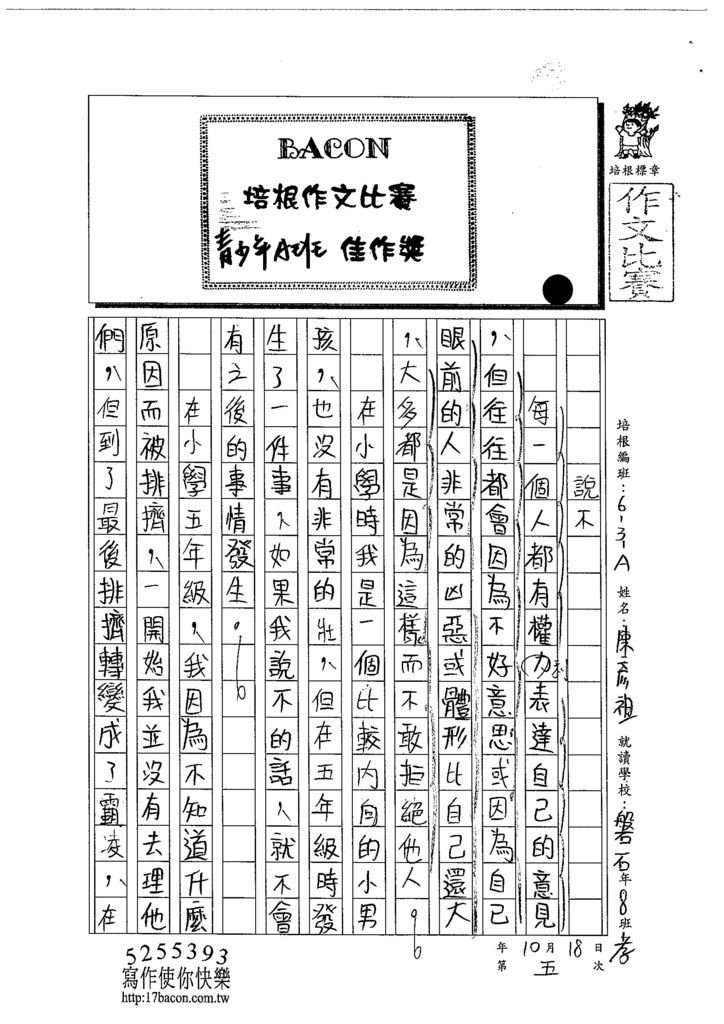 BACON
培根作文比賽
青少年A班 佳作獎
培根標章
作文比賽
培根編班：6,31A 姓名：陳彥祖 就讀學校：磐石 年8班孝
10月18日
年 第五次
說不
每一個人都有權力利表達自己的意見
，但往往都會因為不好意思或因為自己
眼前的人非常的凶惡或體形比自己還大
，大多都是因為這樣而不敢拒絕他人。
在小學時我是一個比較內向的小男
孩，也沒有非常的壯，但在五年級時發
生了一件事，如果我說不的話，就不會
有之後的事情發生。
在小學五年級，我因為不知道什麼
原因而被排擠，一開始我並沒有去理他
們，但到了最後排擠轉變成了霸凌，在
5255393
寫作使你快樂
http:17bacon.com.tw